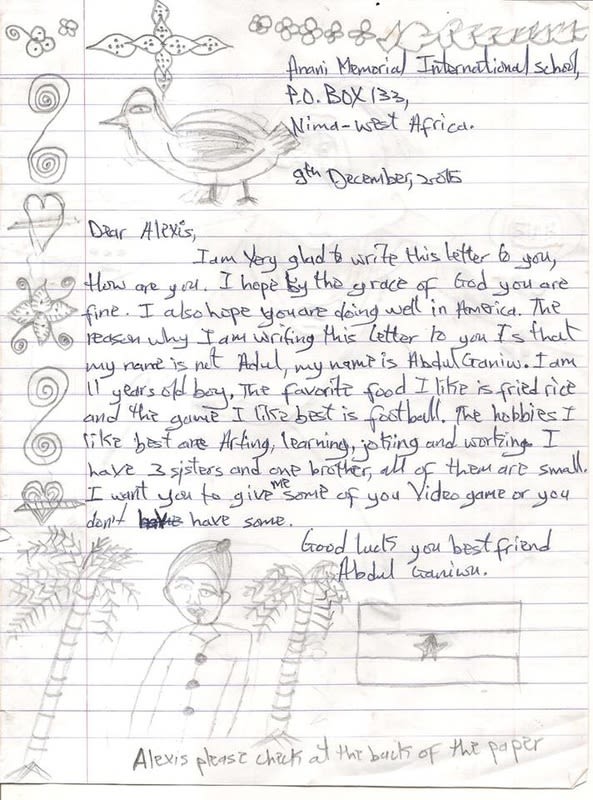 Anani Memorial International school,
P.O. BOX 133,
Nima-west Africa.
9th December, 2005
Dear Alexis,
I am Very glad to write this letter to you,
How are you. I hope by the grace of God you are
fine. I also hope you are doing well in America. The
reason why I am writing this letter to you Is that
my name is not Adul, my name is Abdul Ganiw. I am
11 years old boy. The favorite food I like is fried rice
and the game I like best is football. The hobbies I
like best are Arting, learning, joking and working. I
have 3 sisters and one brother, all of them are small.
I want you to give me some of you Video game or you
don't have some.
Good luck you best friend
Abdul Ganiwu.
Alexis please check at the back of the paper